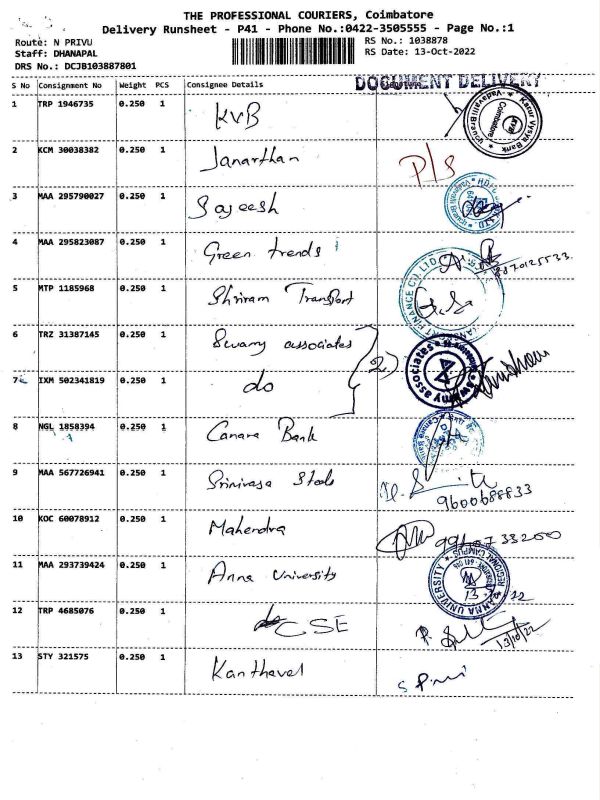 THE PROFESSIONAL COURIERS, Coimbatore
Delivery Runsheet - P41 - Phone No.:0422-3505555 - Page No.:1
Route: N PRIVU
RS No.: 1038878
Staff: DHANAPAL
RS Date: 13-Oct-2022
DRS No.: DCJB103887801
DOCUMENT DELIVERY
S No Consignment No Weight PCS Consignee Details
1 TRP 1946735 0.250 1 KVB
Karur Vysya Bank Vadavalli Branch Coimbatore
2 KCM 30038382 0.250 1 Janarthan P/S
3 MAA 295790027 0.250 1 Sajeesh
4 MAA 295823087 0.250 1 Green trends
5 MTP 1185968 0.250 1 Shriram Transport
FINANCE CO. LTD
6 TRZ 31387145 0.250 1 Swamy associates 2)
Swamy associates
7 IXM 502341819 0.250 1 do
8 NGL 1858394 0.250 1 Canara Bank
9 MAA 567726941 0.250 1 Srinivasa
9600688833
10 KOC 60078912 0.250 1 Mahendra
11 MAA 293739424 0.250 1 Anna University
ANNA UNIVERSITY REGIONAL CAMPUS
12 TRP 4685076 0.250 1 CSE
13/10/22
13 STY 321575 0.250 1 Kanthavel